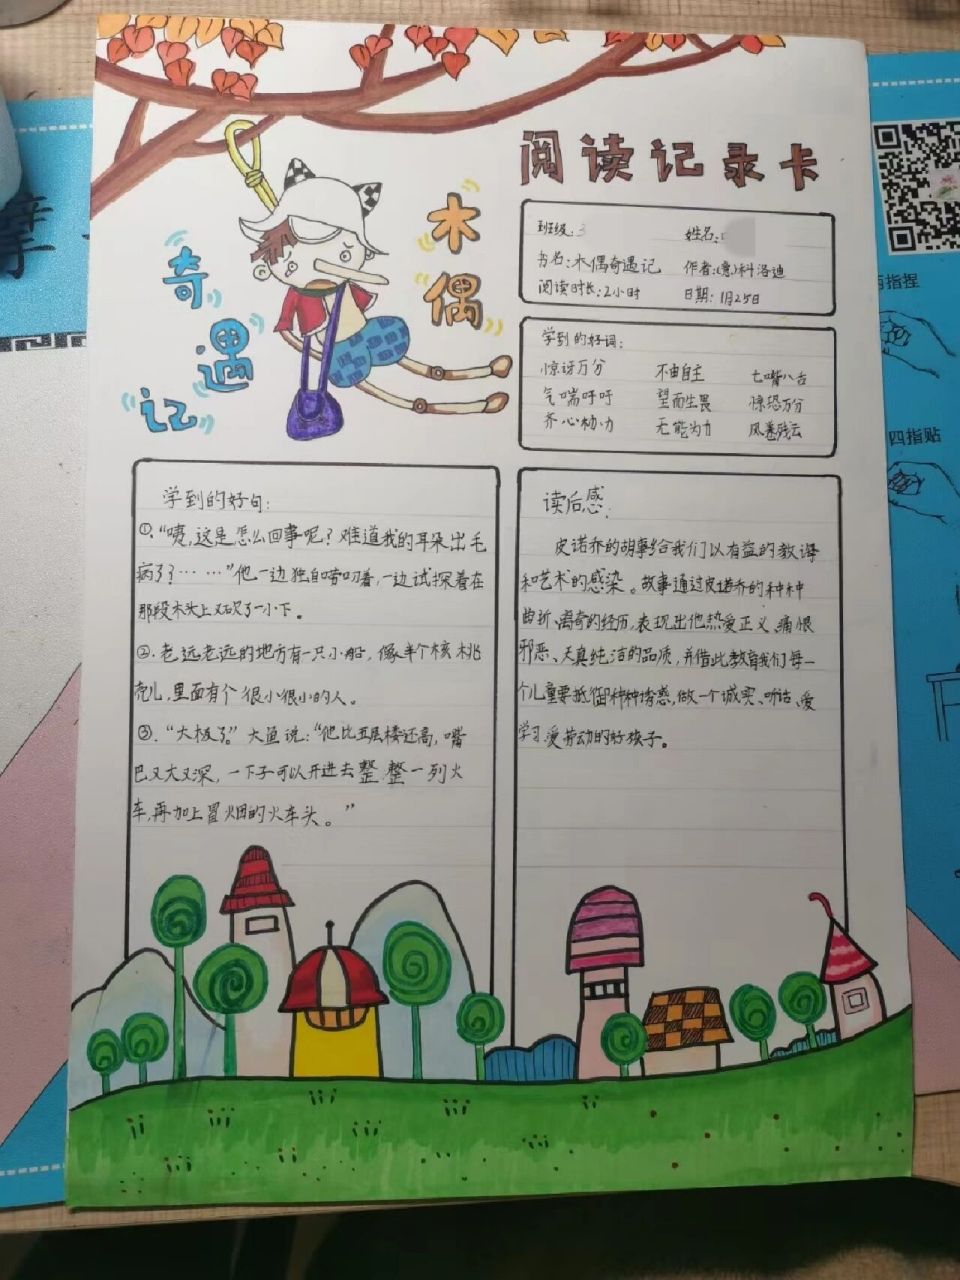 阅读记录卡
木偶
奇遇记
班级:3 姓名:
书名:木偶奇遇记 作者:(意)科洛迪
阅读时长:2小时 日期:1月25日
学到的好词:
惊讶万分 不由自主 七嘴八舌
气喘吁吁 望而生畏 惊恐万分
齐心协力 无能为力 风卷残云
学到的好句:
①.“咦,这是怎么回事呢?难道我的耳朵出毛
病了?……”他一边独自唠叨着,一边试探着在
那段木头上又砍了一小下。
②.老远老远的地方有一只小船,像半个核桃
壳儿,里面有个很小很小的人。
③.“大极了。”大鱼说:“他比五层楼还高,嘴
巴又大又深,一下子可以开进去整整一列火
车,再加上冒烟的火车头。”
读后感:
皮诺乔的故事给我们以有益的教诲
和艺术的感染。故事通过皮诺乔的种种
曲折、离奇的经历,表现出他热爱正义、痛恨
邪恶、天真纯洁的品质,并借此教育我们每一
个儿童要抵御种种诱惑,做一个诚实、听话、爱
学习、爱劳动的好孩子。
指捏
四指贴